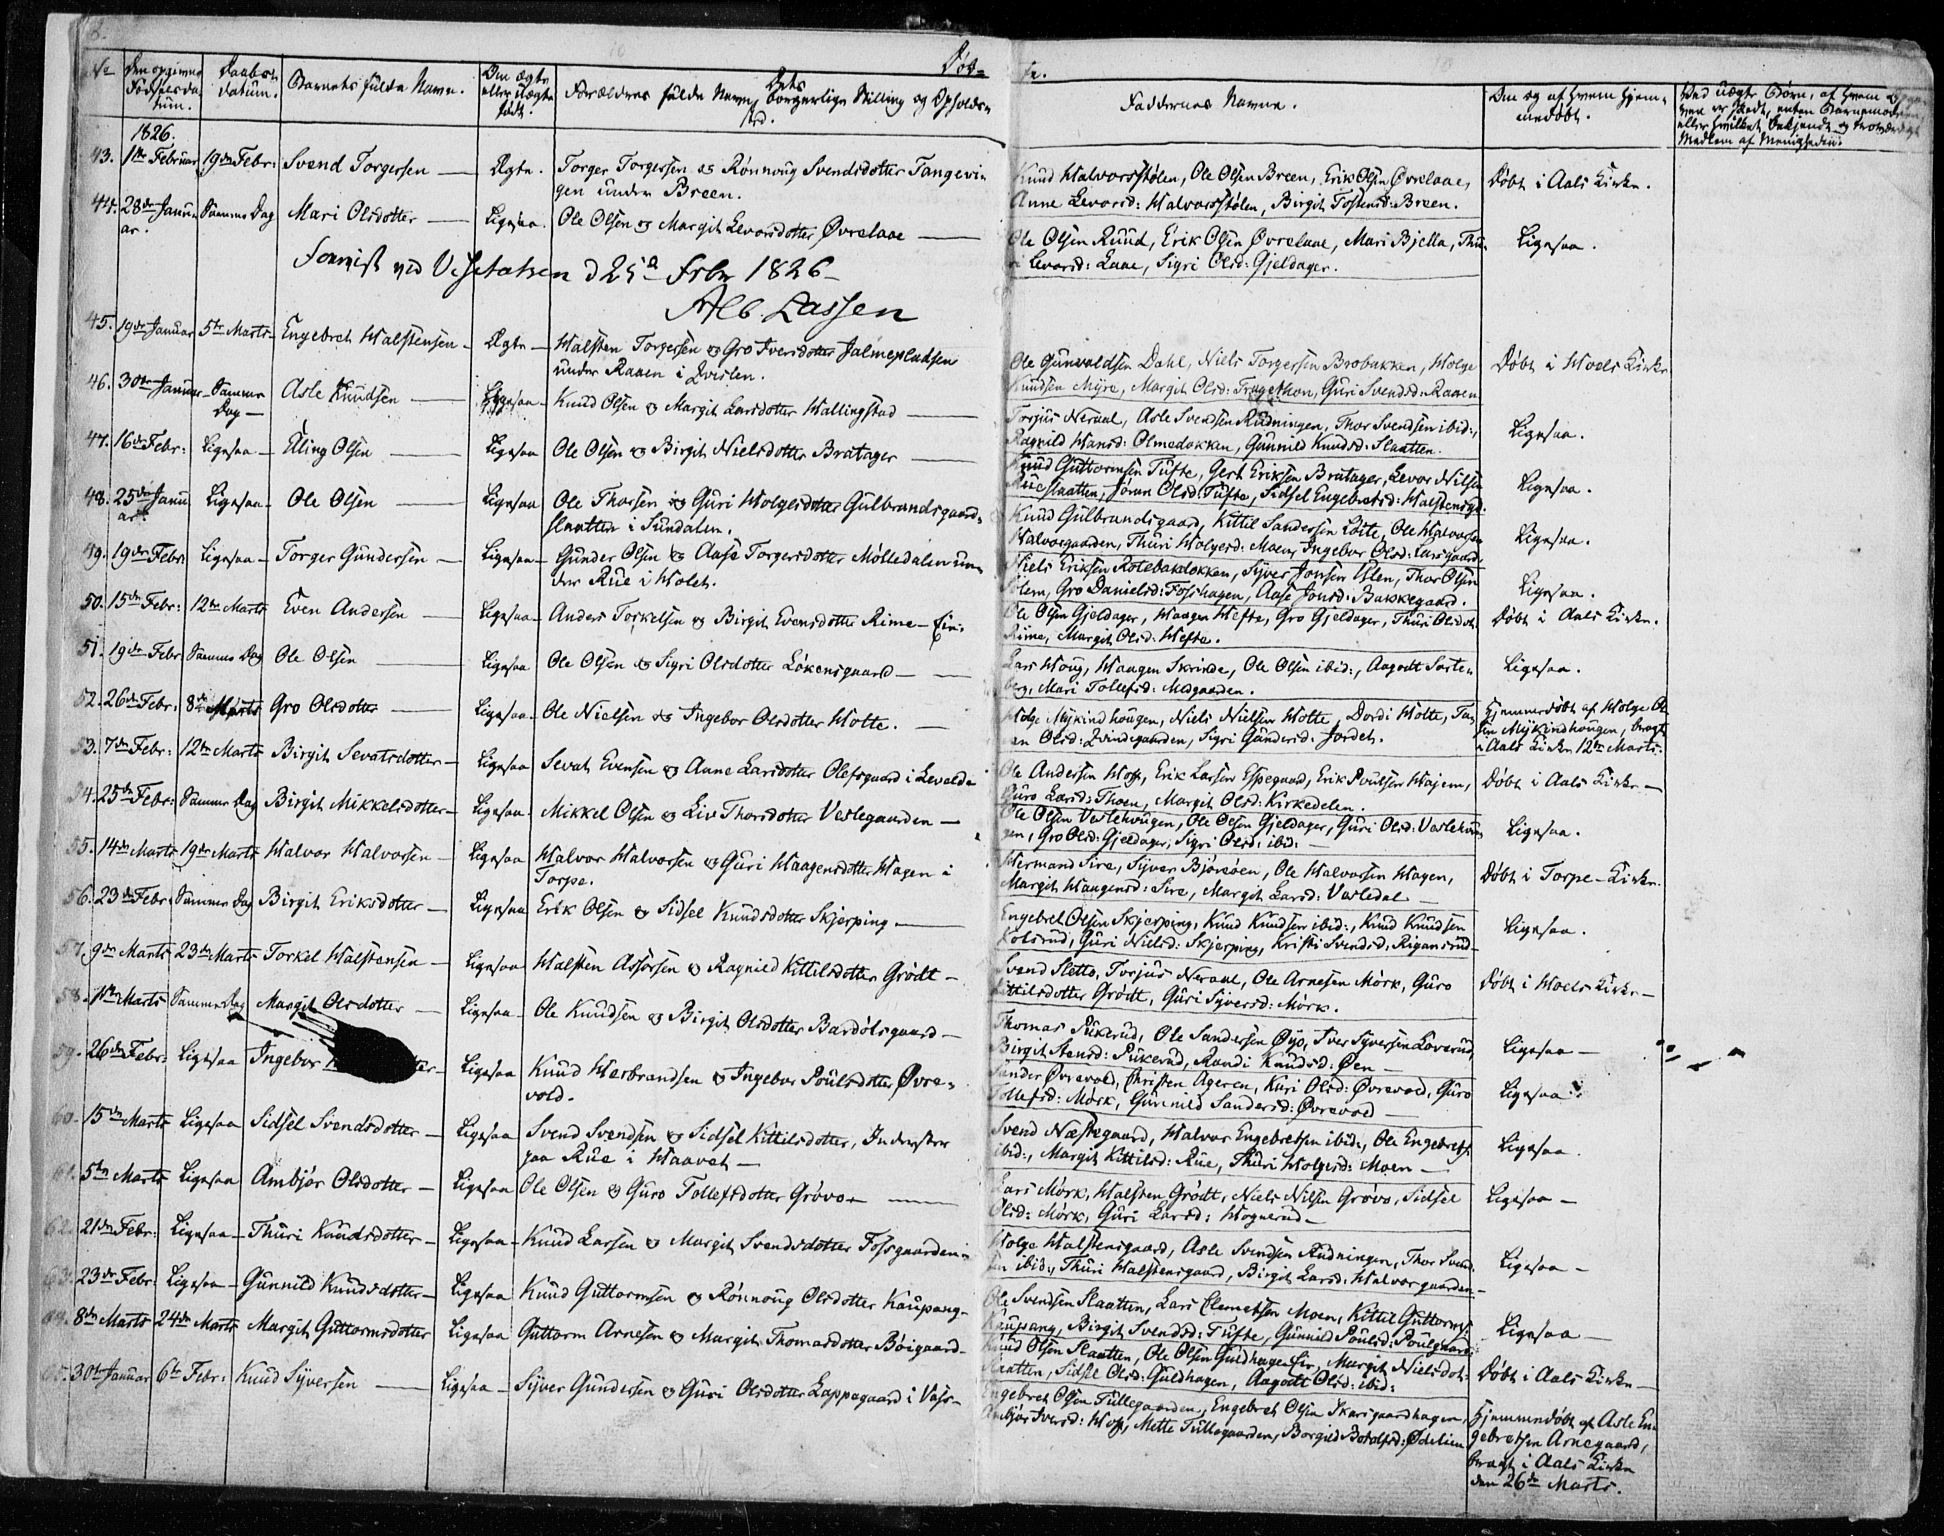 8.
Døb- te.
No
Den opgivne Fødselsdatum.
Daabens datum.
Barnets fulde Navn.
Om ægte eller uægte født.
Forældres fulde Navn, Dets borgerlige Stilling og Opholdssted.
Faddernes Navne.
Om og af hvem hjemmedøbt.
1826.
43. 1ste Februar 19de Febr: Svend Torgersen — Ægte. Torger Torgersen & Rønnoug Svendsdotter Tangevin
gen under Breen.
Knud Halvorsstølen, Ole Olsen Breen, Erik Olsen Øvrelaae,
Anne Levorsd: Halvorsstølen, Birgit Tostensd: Breen.
Døbt i Aals Kirke.
44. 28de Janu Samme Dag Mari Olsdotter — Ligesaa. Ole Olsen & Margit Levorsdotter Øvrelaae —
ar.
Ole Olsen Ruud, Erik Olsen Øvrelaae, Mari Bjella, Thu
ri Levorsd: Laae, Sigri Olsd: Gjeldager.
Ligesaa.
d 25d Febr 1826
Alb. Lassen
45. 19de Januar 5te Marts Engebret Halstensen - Ægte — Halsten Torgersen & Gro Iversdotter Jalmepladsen
under Raaen i Qvislen.
Ole Gunvaldsen Dahl, Niels Torgersen Brobakken, Holge
Knudsen Myre, Margit Olsd: Trøgethon, Guri Svendsd: Raaen
Døbt i Hoels Kirke
46. 30te Januar Samme Dag — Asle Knudsen — Ligesaa Knud Olsen & Margit Larsdotter Hallingstad —
Torjus Neraal, Asle Svendsen Rudningen, Thor Svendsen ibid:,
Ragnild Hansd: Olmedokken, Gunnild Knudsd: Slaatten.
Ligesaa.
47. 16de Febr: Ligesaa — Aling Olsen — Ligesaa Ole Olsen & Birgit Nielsdotter Bratager —
Knud Guttormsen Tufte, Gert Eriksen Bratager, Levor Nilsen
Rueslaatten, Jøran Olsd: Tufte, Sidsel Engebretsd: Halstensgd.
Ligesaa.
48. 25de Janu Ligesaa — Ole Olsen — Ligesaa Ole Thorsen & Guri Holgersdotter Gulbrandsgaard-
ar
slaatten i Sundalen.
Knud Gulbrandsgaard, Kittil Sandersen Løite, Ole Halvorsen
Halvorgaarden, Thuri Holgersd: Moen, Ingebor Olsd: Larsgaard.
Ligesaa.
49. 19de Febr: Ligesaa — Torger Gundersen — Ligesaa — Gunder Olsen & Aase Torgersdotter Mølledalen un-
der Rue i Holet.
Niels Eriksen Rotebakdokken, Syver Jonsen Islen, Thor Olsen
Islen, Gro Danielsd: Fosshagen, Aase Jonsd: Bakkegaard.
Ligesaa.
50. 15de Febr: 12te Marts Even Andersen — Ligesaa — Anders Torkelsen & Birgit Evensdotter Rime —
Ole Olsen Gjeldager, Haagen Hefte, Gro Gjeldager, Thuri Olsdot
Rime, Margit Olsd: Hefte.
Døbt i Aals Kirke.
51. 19de Febr Samme Dag Ole Olsen — Ligesaa Ole Olsen & Sigri Olsdotter Løkensgaard —
Lars Houg, Haagen Skrinde, Ole Olsen ibid:, Aagodt Sorte-
berg, Mari Tollefsd: Medgaarden.
Ligesaa.
52. 26de Febr: 8de Marts Gro Olsdotter — Ligesaa Ole Nielsen & Ingebor Olsdotter Holte. —
Holge Mykindhougen, Niels Nielsen Holte, Dordi Holte, Jø
ran Olsd: Qvindegaarden, Sigri Gundersd: Jordet.
Hjemmedøbt af Holge Ol
sen Mykindhougen, bragt
i Aals Kirke 12te Marts.
53. 7de Febr: 12te Marts Birgit Sevatsdotter — Ligesaa Sevat Evensen & Anne Larsdotter Olefsgaard i Levelde
Ole Andersen Hoff, Erik Larsen Espegaard, Erik Poulsen Hajem,
Guro Larsd: Thoen, Margit Olsd: Kirkedelen.
Døbt i Aals Kirke —
54. 25de Febr: Samme Dag Birgit Mikkelsdotter — Ligesaa Mikkel Olsen & Liv Thorsdotter Veslegaarden —
Ole Olsen Veslehougen, Ole Olsen Gjeldager, Guri Olsd: Veslehou
gen, Gro Olsd: Gjeldager, Sigri Olsd: ibid: —
Ligesaa.
55. 14de Marts 19de Marts Halvor Halvorsen — Ligesaa Halvor Halvorsen & Guri Haagensdotter Hagen i
Torpe.
Hermand Sire, Syver Bjøreøen, Ole Halvorsen Hagen,
Margit Haagensd: Sire, Margit Larsd: Vesledal —
Døbt i Torpe-Kirke.
56. 23de Febr: Samme Dag Birgit Eriksdotter — Ligesaa Erik Olsen & Sidsel Knudsdotter Skjerping —
Engebret Olsen Skjerping, Knud Knudsen ibid:, Knud Knudsen
Kolsrud, Guri Nielsd: Skjerping, Kristi Svendsd, Rigansrud
Ligesaa.
57. 9de Marts 23de Marts Torkel Halstensen — Ligesaa Halsten Assorsen & Ragnild Kittilsdotter Grødt —
Svend Sletto, Torjus Neraal, Ole Arnesen Mørk, Guro
Kittilsdotter Grødt, Guri Syversd: Mørk.
Døbt i Hoels Kirke —
58. 1ste Marts Samme Dag Margit Olsdotter — Ligesaa Ole Knudsen & Birgit Olsdotter Bardølsgaard —
Thomas Pukerud, Ole Sandersen Øyo, Iver Syversen Loverud,
Birgit Stensd: Pukerud, Randi Knudsd: Øen —
Ligesaa —
59. 26de Febr: Ligesaa Ingebor — Ligesaa Knud Herbrandsen & Ingebor Poulsdotter Øvre-
vold.
Sander Øvrevold, Christen Ageren, Kari Olsd: Øvrevold, Guro
Tollefsd: Mørk, Gunnild Sandersd: Øvrevold —
Ligesaa.
60. 15de Marts Ligesaa Sidsel Svendsdotter — Ligesaa Svend Svendsen & Sidsel Kittilsdotter, Inderster
paa Rue i Haavet —
Svend Næstegaard, Halvor Engebretsen ibid:, Ole Engebrets:
ibid:, Margit Kittilsd: Rue, Thuri Holgersd: Moen —
Ligesaa.
61. 5te Marts Ligesaa Ambjør Olsdotter — Ligesaa Ole Olsen & Guro Tollefsdotter Grøvo —
Lars Mørk, Halsten Grødt, Niels Nilsen Grøvo, Sidsel
Olsd: Mørk, Guri Larsd: Hognerud —
Ligesaa —
62. 21de Febr: Ligesaa — Thuri Knudsdotter — Ligesaa — Knud Larsen & Margit Svendsdotter Fossgaarden
Holge Halstensgaard, Asle Svendsen Rudningen, Thor Svend
sen ibid:, Thuri Halstensgaard, Birgit Larsd: Halvorgaarden
Ligesaa —
63. 23de Febr: Ligesaa — Gunnild Knudsdotter — Ligesaa Knud Guttormsen & Rønnoug Olsdotter Kaupang —
Ole Svendsen Slaatten, Lars Clemetsen Moen, Kittil Guttorms:
Kaupang, Birgit Svendsd: Tufte, Gunnild Poulsd: Poulgaard
Ligesaa —
64. 8de Marts 24de Marts Margit Guttormsdotter Ligesaa Guttorm Arnesen & Margit Thomasdotter Bøigaard —
Knud Olsen Slaatten, Ole Olsen Guldhagen, Margit Nielsdot:
Slaatten, Sidsle Olsd: Guldhagen, Aagodt Olsd: ibid:
Døbt i Aals Kirke —
65. 30te Januar 6te Febr: Knud Syversen — Ligesaa — Syver Gundersen & Guri Olsdotter Lappegaard i Vats —
Engebret Olsen Tullegaarden, Engebret Olsen Skarsgaardhagen,
Ambjør Iversd: Hoff, Mette Tullegaarden, Borgild Botolfsd: Ødelien
Hjemmedøbt af Asle En
gebretsen Arnegaard,
bragt i Aals Kirke
den 26de Marts.